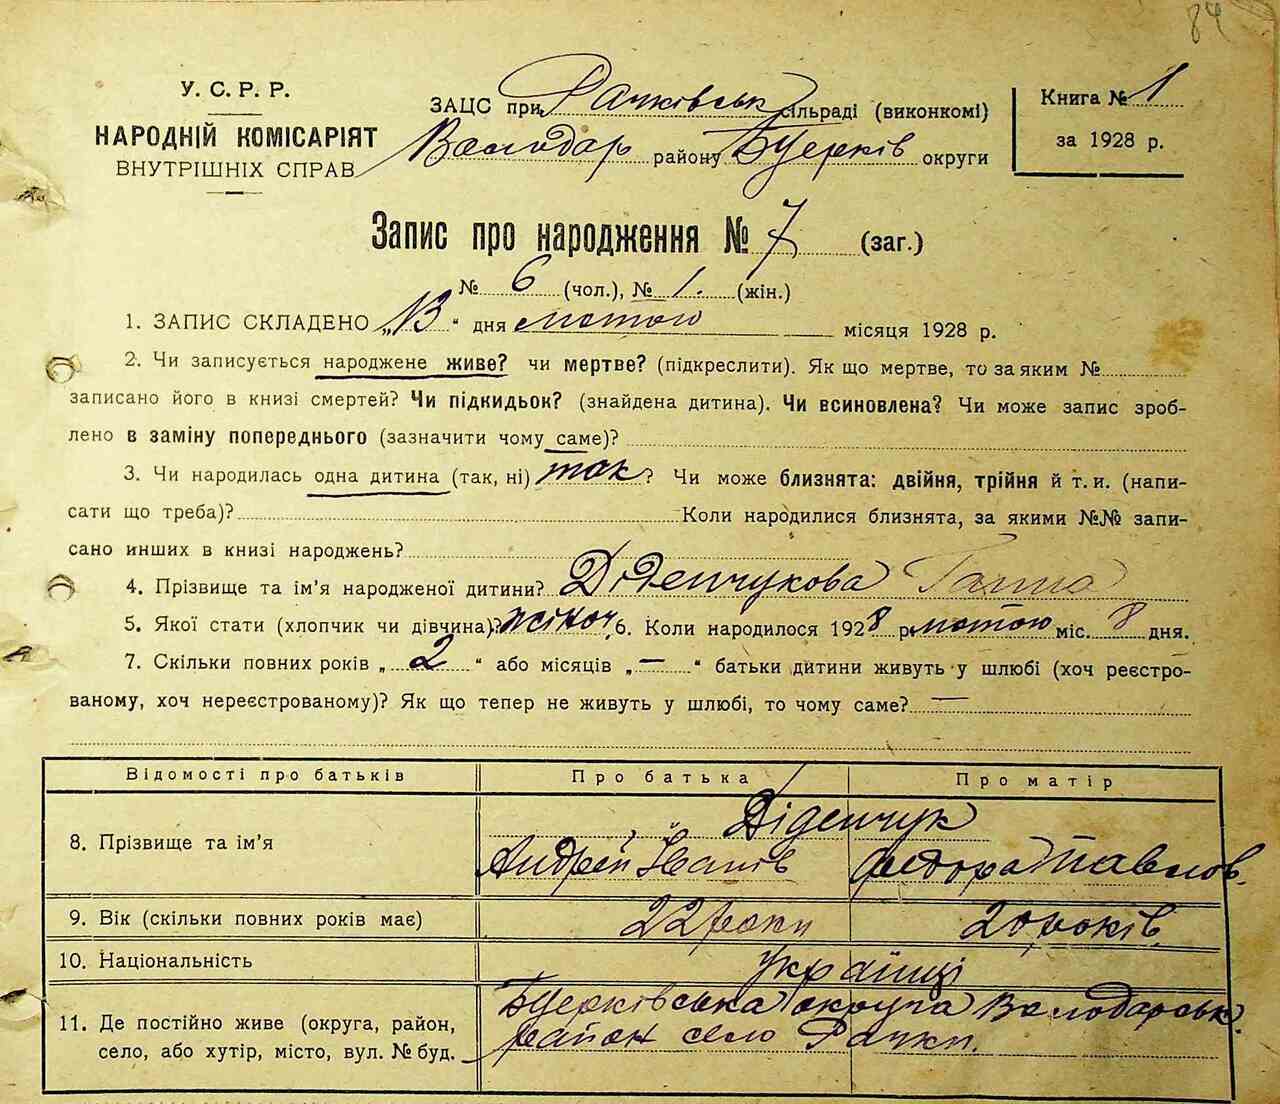 84
У. С. Р. Р.
НАРОДНІЙ КОМІСАРІЯТ
ВНУТРІШНІХ СПРАВ
ЗАЦС при Рачківськ сільраді (виконкомі)
Володар району Бцерків округи
Книга № 1
за 1928 р.
Запис про народження № 7 (заг.)
№ 6 (чол.), № 1. (жін.)
1. ЗАПИС СКЛАДЕНО „13“ дня лютого місяця 1928 р.
2. Чи записується народжене живе? чи мертве? (підкреслити). Як що мертве, то за яким №
записано його в книзі смертей? Чи підкидьок? (знайдена дитина). Чи всиновлена? Чи може запис зроб-
лено в заміну попереднього (зазначити чому саме)?
3. Чи народилась одна дитина (так, ні) так? Чи може близнята: двійня, трійня й т. и. (напи-
сати що треба)? Коли народилися близнята, за якими №№ запи-
сано инших в книзі народжень?
4. Прізвище та ім'я народженої дитини? Діденчукова Ганна
5. Якої стати (хлопчик чи дівчина)? жіноч. 6. Коли народилося 1928 р лютого міс. 8 дня.
7. Скільки повних років „ 2 “ або місяців „ — “ батьки дитини живуть у шлюбі (хоч реєстро-
ваному, хоч нереєстрованому)? Як що тепер не живуть у шлюбі, то чому саме? —
Відомості про батьків Про батька Про матір
8. Прізвище та ім'я Діденчук
Андрей Іванів Федора Павлов.
9. Вік (скільки повних років має) 22 роки 20 років.
10. Національність українці
11. Де постійно живе (округа, район, Бцерківська округа Володарськ.
село, або хутір, місто, вул. № буд. район село Рачки.